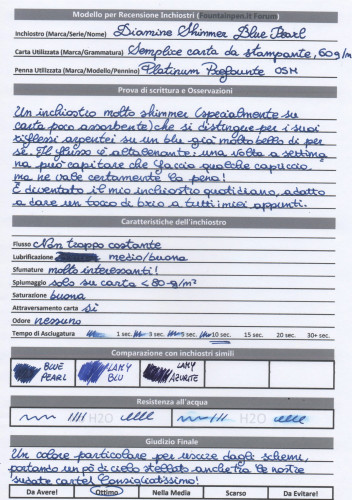 Modello per Recensione Inchiostri (Fountainpen.it Forum)
Inchiostro (Marca/Serie/Nome) Diamine Shimmer Blue Pearl
Carta Utilizzata (Marca/Grammatura) Semplice carta da stampante, 60g/m
Penna Utilizzata (Marca/Modello/Pennino) Platinum Prefounte 05M
Prova di scrittura e Osservazioni
Un inchiostro molto shimmer (specialmente su
carta poco assorbente) che si distingue per i suoi
riflessi argentei su un blu già molto bello di per
sé. Il flusso è altalenante: una volta a settima
na può capitare che faccia qualche capriccio
ma ne vale certamente la pena!
È diventato il mio inchiostro quotidiano, adatto
a dare un tocco di brio a tutti i miei appunti.
Caratteristiche dell'inchiostro
Flusso Non troppo costante
Lubrificazione medio/buona
Sfumature molto interessanti!
Spiumaggio solo su carta <80 g/m²
Saturazione buona
Attraversamento carta sì
Odore nessuno
Tempo di Asciugatura 1 sec. 3 sec. 5 sec. 10 sec. 15 sec. 20 sec. 30+ sec.
Comparazione con inchiostri simili
BLUE PEARL LAMY BLU LAMY AZURITE
Resistenza all'acqua
H2O H2O
Giudizio Finale
Un colore particolare per uscire dagli schemi,
portando un pò di cielo stellato anche tra le nostre
sudate carte! Consigliatissimo!
Da Avere! Ottimo Nella Media Scarso Da Evitare!